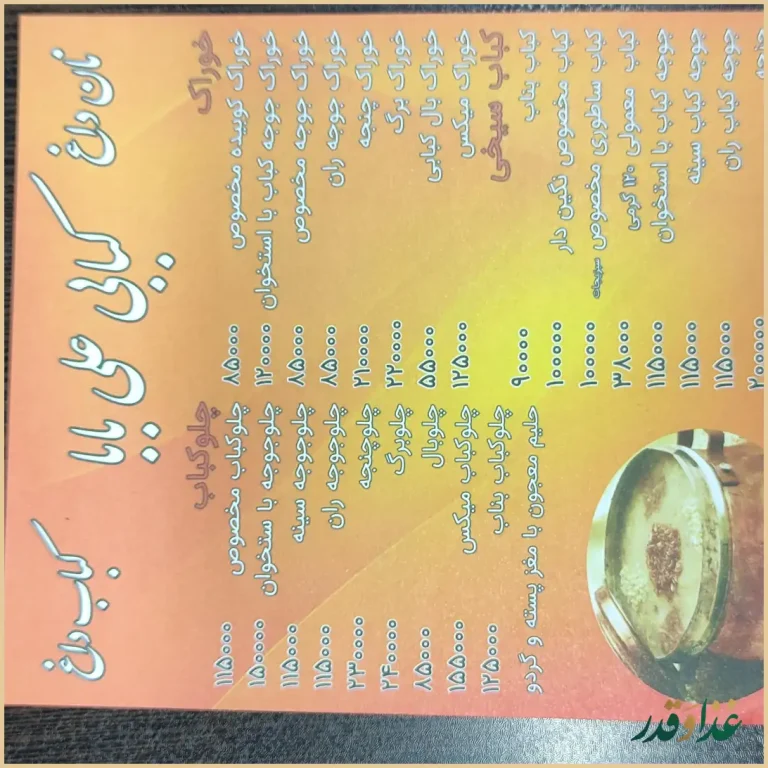 نان داغ
کبابی علی بابا
کباب داغ
خوراک
خوراک کوبیده مخصوص ۸۵۰۰۰
خوراک جوجه کباب با استخوان ۱۲۰۰۰۰
خوراک جوجه مخصوص ۸۵۰۰۰
خوراک جوجه ران ۸۵۰۰۰
خوراک چنجه ۲۱۰۰۰۰
خوراک برگ ۲۲۰۰۰۰
خوراک بال کبابی ۵۵۰۰۰
خوراک میکس ۱۲۵۰۰۰
کباب سیخی
کباب بناب ۹۰۰۰۰
کباب مخصوص نگین دار ۱۰۰۰۰۰
کباب ساطوری مخصوص سبزیجات ۱۰۰۰۰۰
کباب معمولی ۱۲۰ گرمی ۳۸۰۰۰
جوجه کباب با استخوان ۱۱۵۰۰۰
جوجه کباب سینه ۱۱۵۰۰۰
جوجه کباب ران ۱۱۵۰۰۰
۲۰۰۰۰۰
چلوکباب
چلوکباب مخصوص ۱۱۵۰۰۰
چلوجوجه با ستخوان ۱۵۰۰۰۰
چلوجوجه سینه ۱۱۵۰۰۰
چلوجوجه ران ۱۱۵۰۰۰
چلوچنجه ۲۳۰۰۰۰
چلوبرگ ۲۴۰۰۰۰
چلوبال ۸۵۰۰۰
چلوکباب میکس ۱۵۵۰۰۰
چلوکباب بناب ۱۲۵۰۰۰
حلیم معجون با مغز پسته و گردو
غذا و قدر